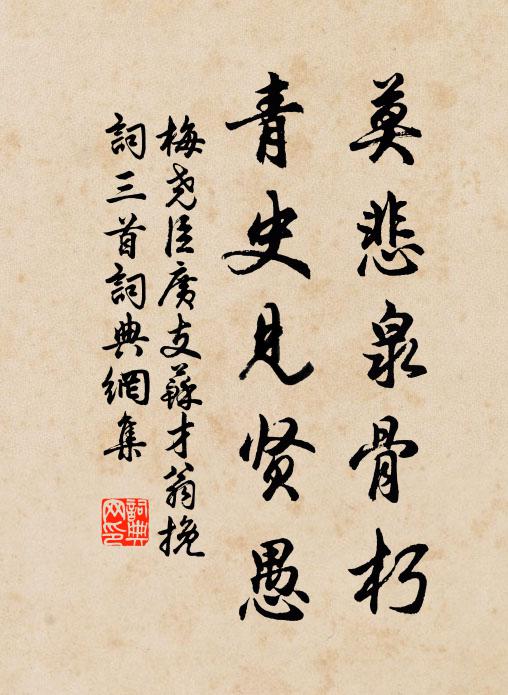 莫悲泉骨朽
青史見贤愚
梅尧臣度支蘇才翁挽
詞三首詞典網集
詞典網印